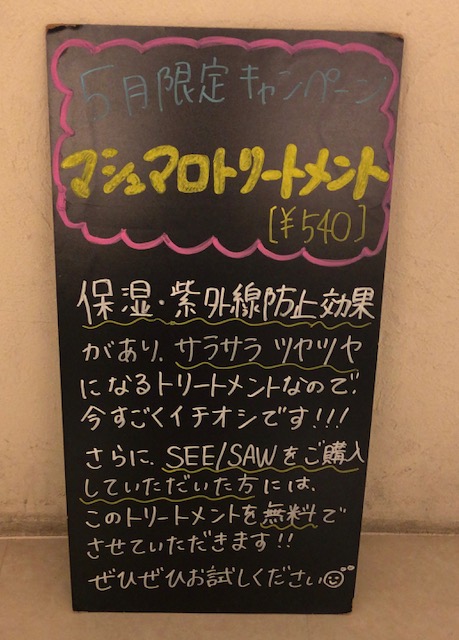 5月限定キャンペーン
マシュマロトリートメント
[¥540]
保湿・紫外線防止効果
があり、サラサラ ツヤツヤ
になるトリートメントなので、
今すごくイチオシです!!!
さらに、SEE/SAWをご購入
していただいた方には、
このトリートメントを無料で
させていただきます!!
ぜひぜひお試しください